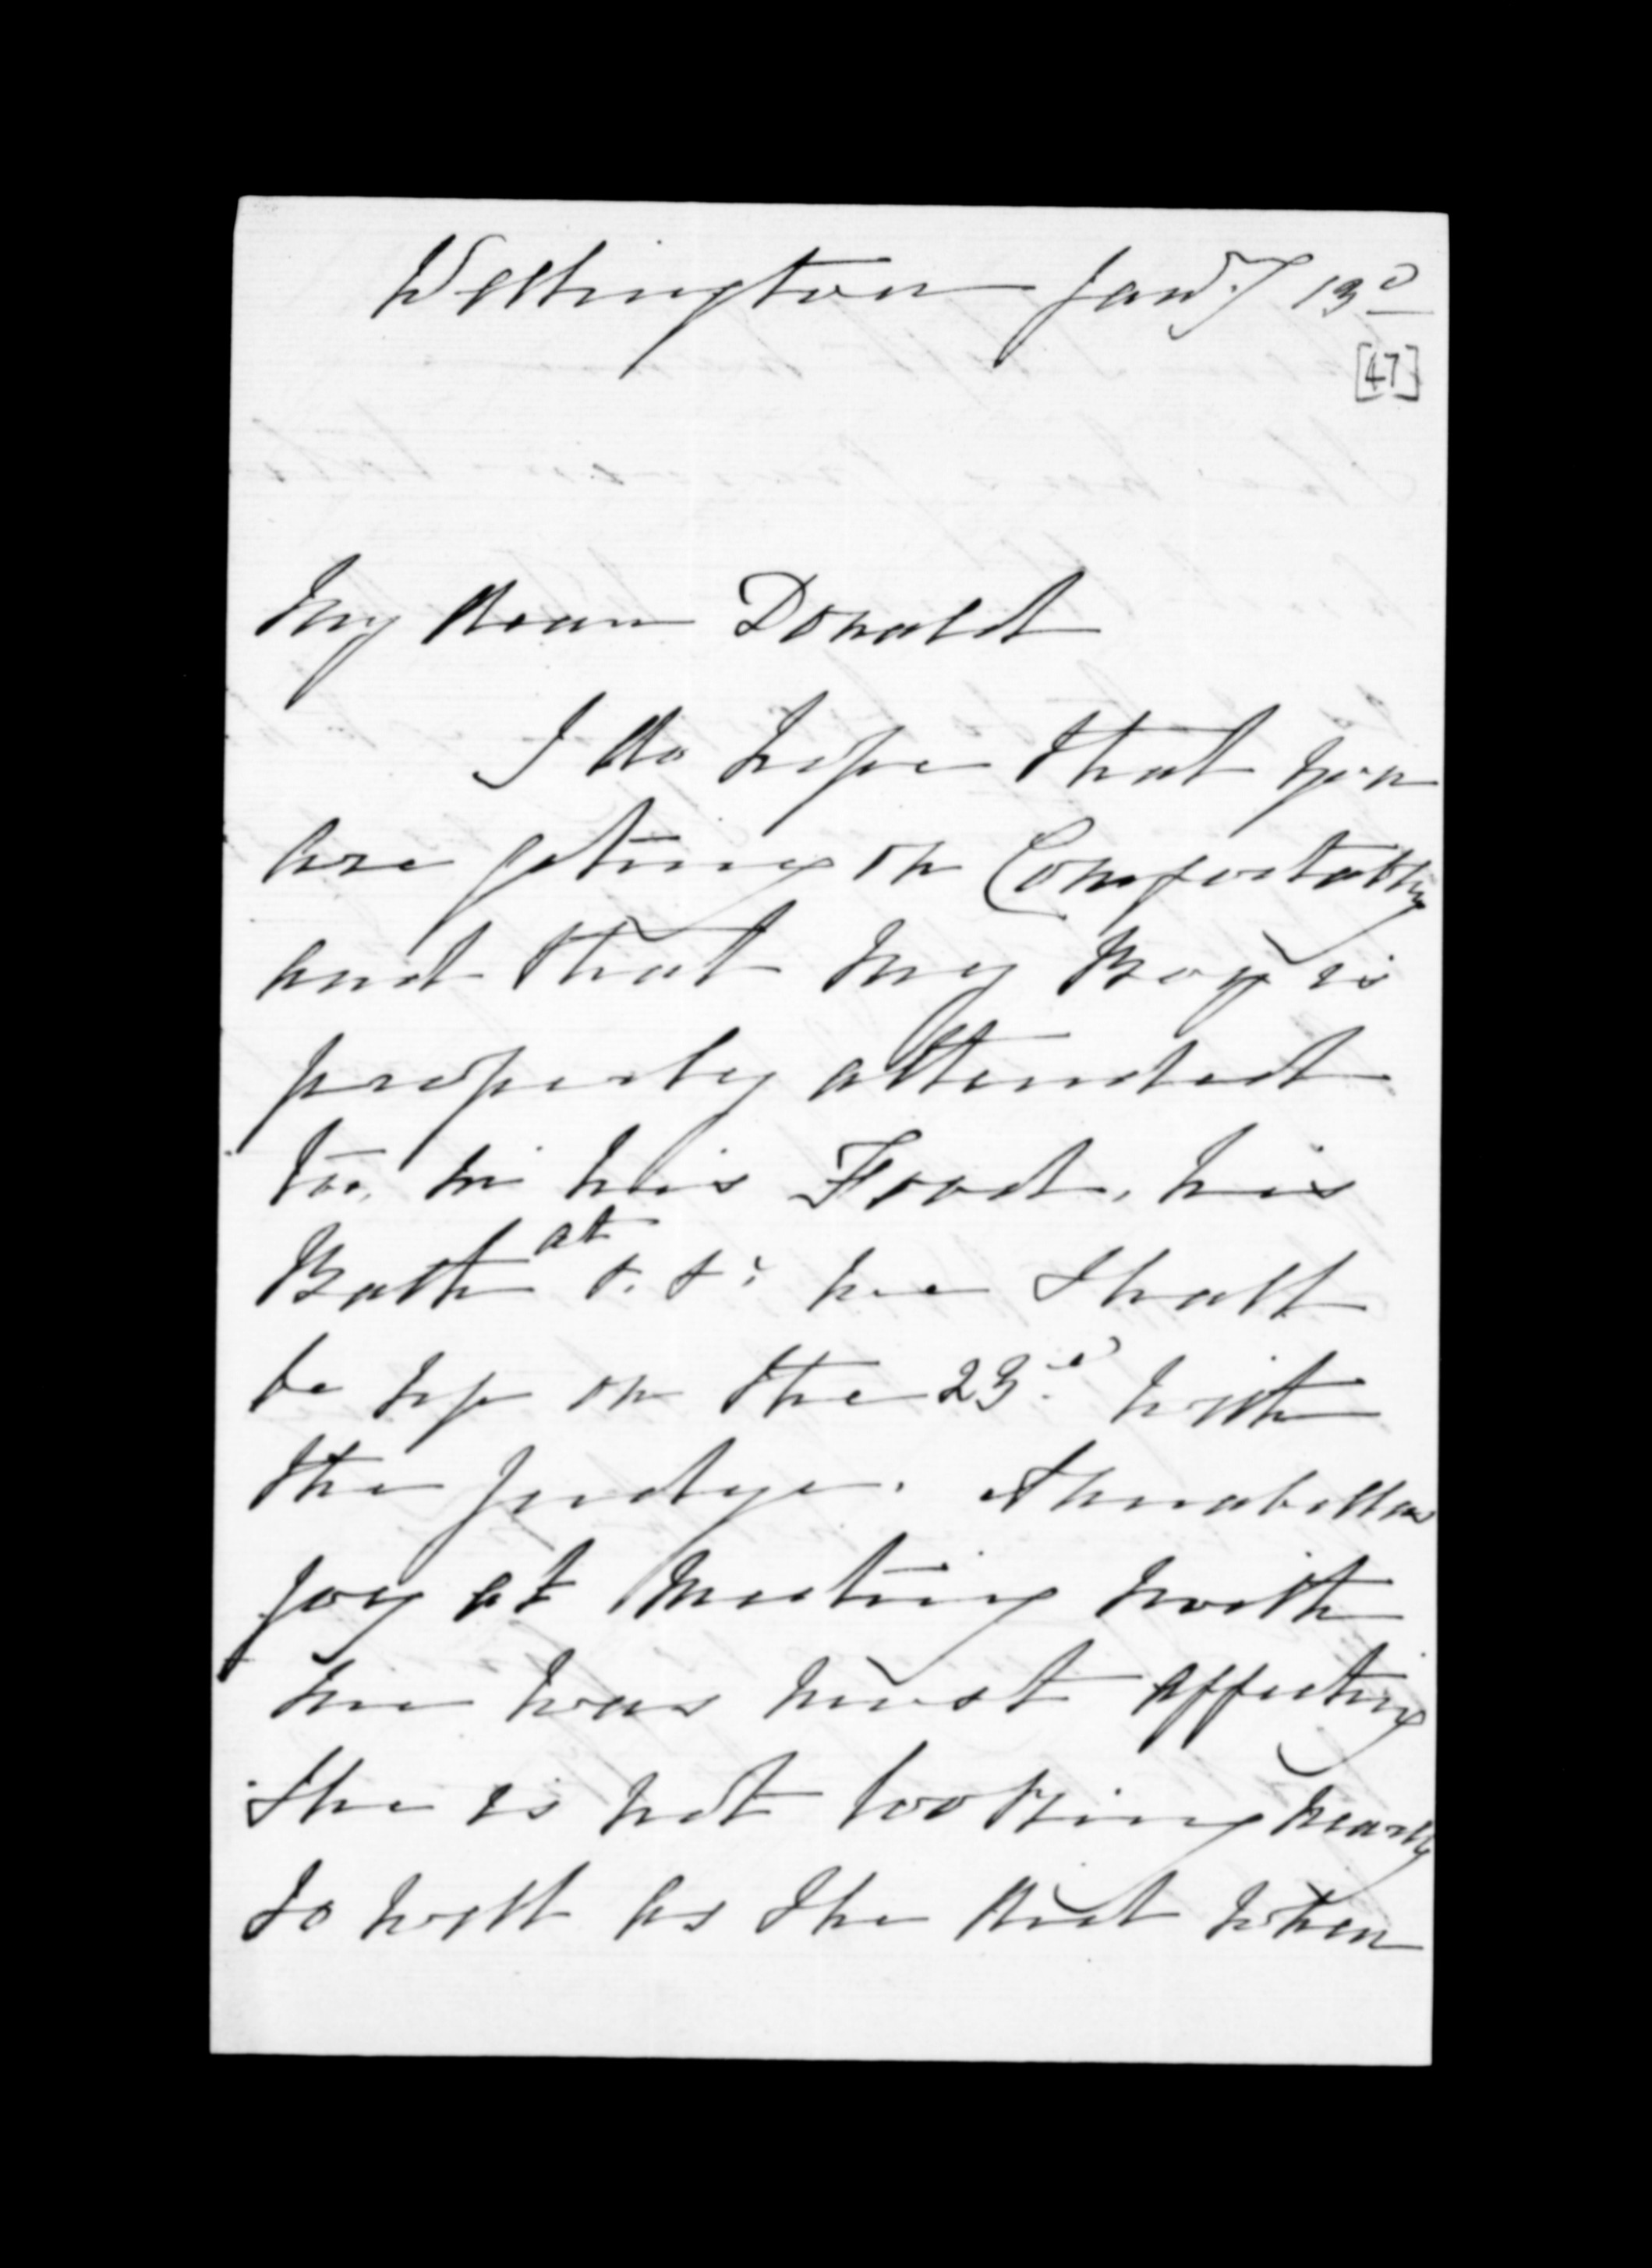 Wellington Jany 13d
[47]
My dear Donald
I do hope that you
are getting on Comfortably
and that my Boy is
properly attended
too, in his Food, his
Bath at &. &: we shall
be up on the 23d with
the Judge. Annabellas
joy at meeting with
me was most affecting
she is not looking nearly
so well as she did when